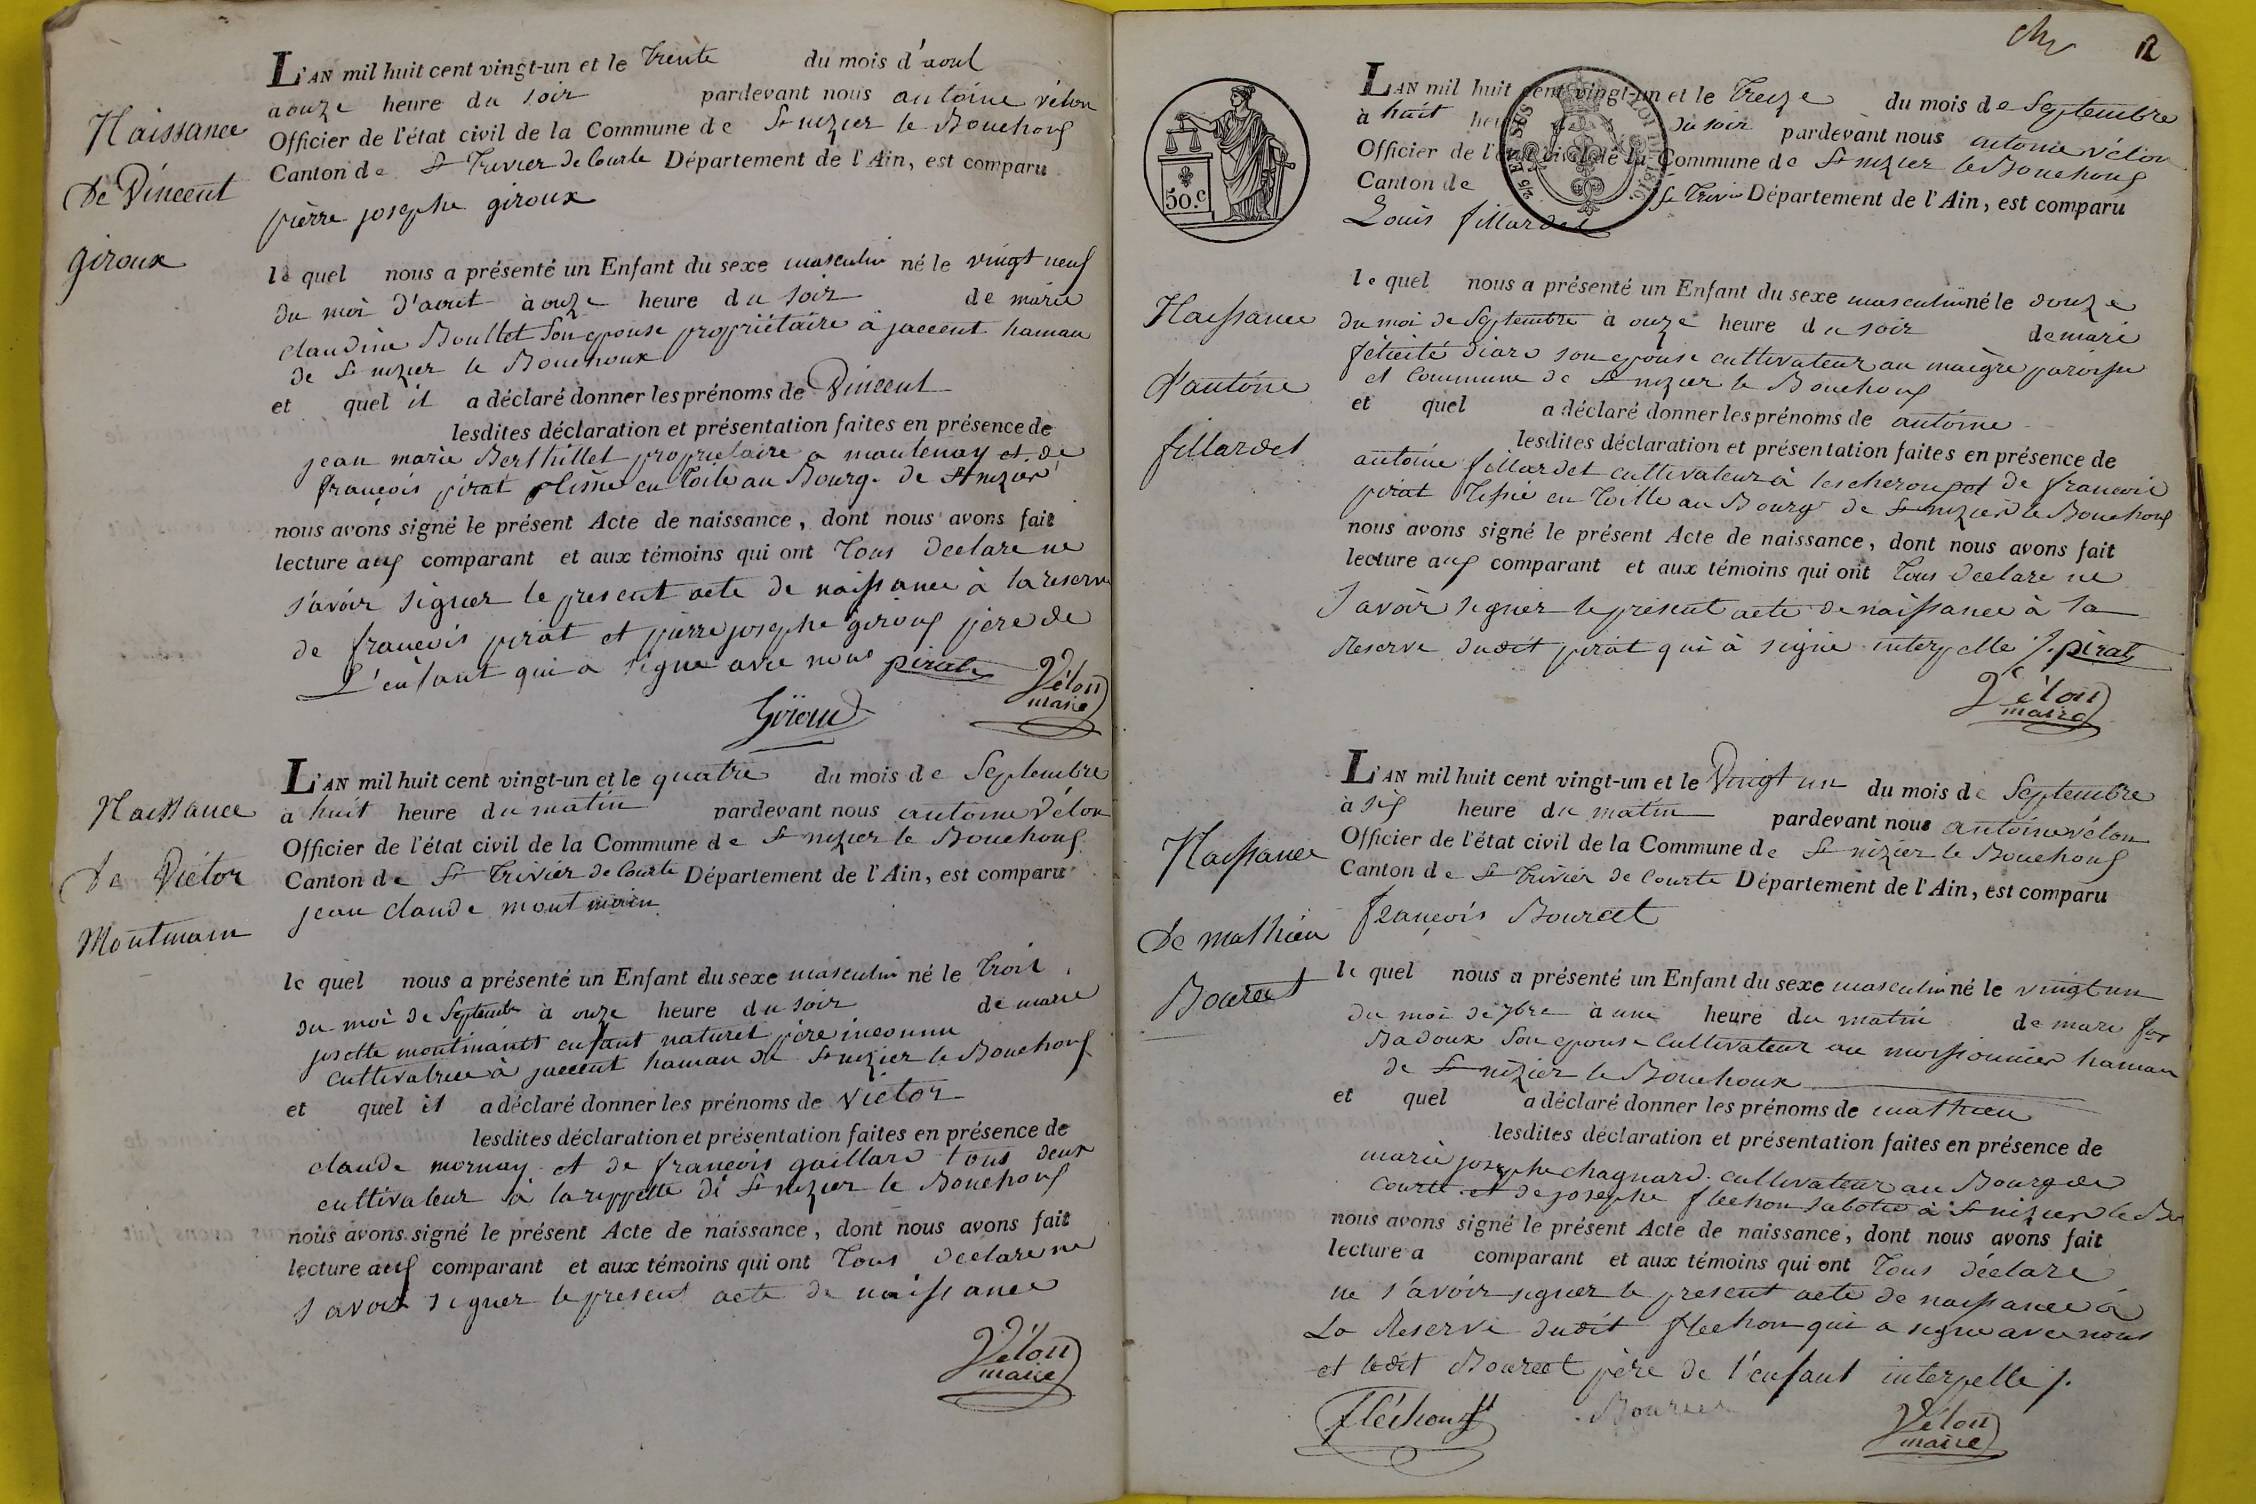 Naissance
de Vincent
giroux
L'AN mil huit cent vingt-un et le trente du mois d'aout
a onze heure du soir pardevant nous antoine vélon
Officier de l'état civil de la Commune de St nizier le Bouchoux
Canton de St Trivier de Courte Département de l'Ain, est comparu
pierre josephe giroux
le quel nous a présenté un Enfant du sexe masculin né le vingt neuf
du moi d'aout à onze heure du soir de marie
claudine Boullet son epouse propriétaire à jaccent hamau
de St nizier le Bouchoux
et quel il a déclaré donner les prénoms de Vincent
lesdites déclaration et présentation faites en présence de
jean marie Berthillet proprietaire a mantenay et de
françois pirat en toile au Bourg de St nizier
nous avons signé le présent Acte de naissance, dont nous avons fait
lecture aux comparant et aux témoins qui ont tous declare ne
s'avoir signer le present acte de naissance à la reserve
de francois pirat et pierre josephe giroux père de
L'enfant qui a signe avec nous pirat
Giroud
Vélon
maire
Naissance
de Victor
Montmain
L'AN mil huit cent vingt-un et le quatre du mois de Septembre
à huit heure du matin pardevant nous antoine Vélon
Officier de l'état civil de la Commune de St nizier le Bouchoux
Canton de St Trivier de Courte Département de l'Ain, est comparu
jean claude montmain
le quel nous a présenté un Enfant du sexe masculin né le trois
du moi de Septembre à onze heure du soir de marie
josette enfant naturel père inconnu
cultivatrice à jaccent hamau de St nizier le Bouchoux
et quel il a déclaré donner les prénoms de Victor
lesdites déclaration et présentation faites en présence de
claude mornay et de françois gaillard tous deux
cultivateur à la rippette de St nizier le Bouchoux
nous avons signé le présent Acte de naissance, dont nous avons fait
lecture aux comparant et aux témoins qui ont tous declare ne
savoir signer le present acte de naissance
Vélon
maire
12
50.c
L'AN mil huit cent vingt-un et le treize du mois de Septembre
à huit heure du soir pardevant nous antoine vélon
Officier de l'état civil de la Commune de St nizier le Bouchoux
Canton de St Trivier Département de l'Ain, est comparu
Louis fillardet
Naissance
d'antoine
fillardet
le quel nous a présenté un Enfant du sexe masculin né le douze
du moi de Septembre à onze heure du soir de marie
félicité diard son epouse cultivateur au maigre paroisse
et commune de St nizier le Bouchoux
et quel a déclaré donner les prénoms de antoine
lesdites déclaration et présentation faites en présence de
antoine fillardet cultivateur à lescheroux et de francois
pirat tissie en toille au Bourg de St nizier le Bouchoux
nous avons signé le présent Acte de naissance, dont nous avons fait
lecture aux comparant et aux témoins qui ont tous declare ne
Savoir signer le présent acte de naissance à la
Reserve dudit pirat qui à signé interpelle /. pirat
Vélon
maire
Naissance
de mathieu
Bourcet
L'AN mil huit cent vingt-un et le vingt un du mois de Septembre
à six heure du matin pardevant nous antoine vélon
Officier de l'état civil de la Commune de St nizier le Bouchoux
Canton de St Trivier de Courte Département de l'Ain, est comparu
françois Bourcet
le quel nous a présenté un Enfant du sexe masculin né le vingt un
du moi de 7bre à une heure du matin de marie
Badoux son epouse Cultivateur au moissonnier hamau
de St nizier le Bouchoux
et quel a déclaré donner les prénoms de mathieu
lesdites déclaration et présentation faites en présence de
marie josephe chagnard cultivateur au Bourg de
Courte et de josephe flechon sabotie à St nizier le Bou
nous avons signé le présent Acte de naissance, dont nous avons fait
lecture a comparant et aux témoins qui ont tous déclare
ne s'avoir signer le present acte de naissance à
La Reserve dudit flechon qui a signe avec nous
et ledit Bourcet père de l'enfant interpelle /.
fléchon
Bourcet
Vélon
maire